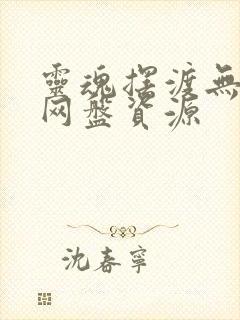 靈魂擺渡無
网盤資源
沈春寧